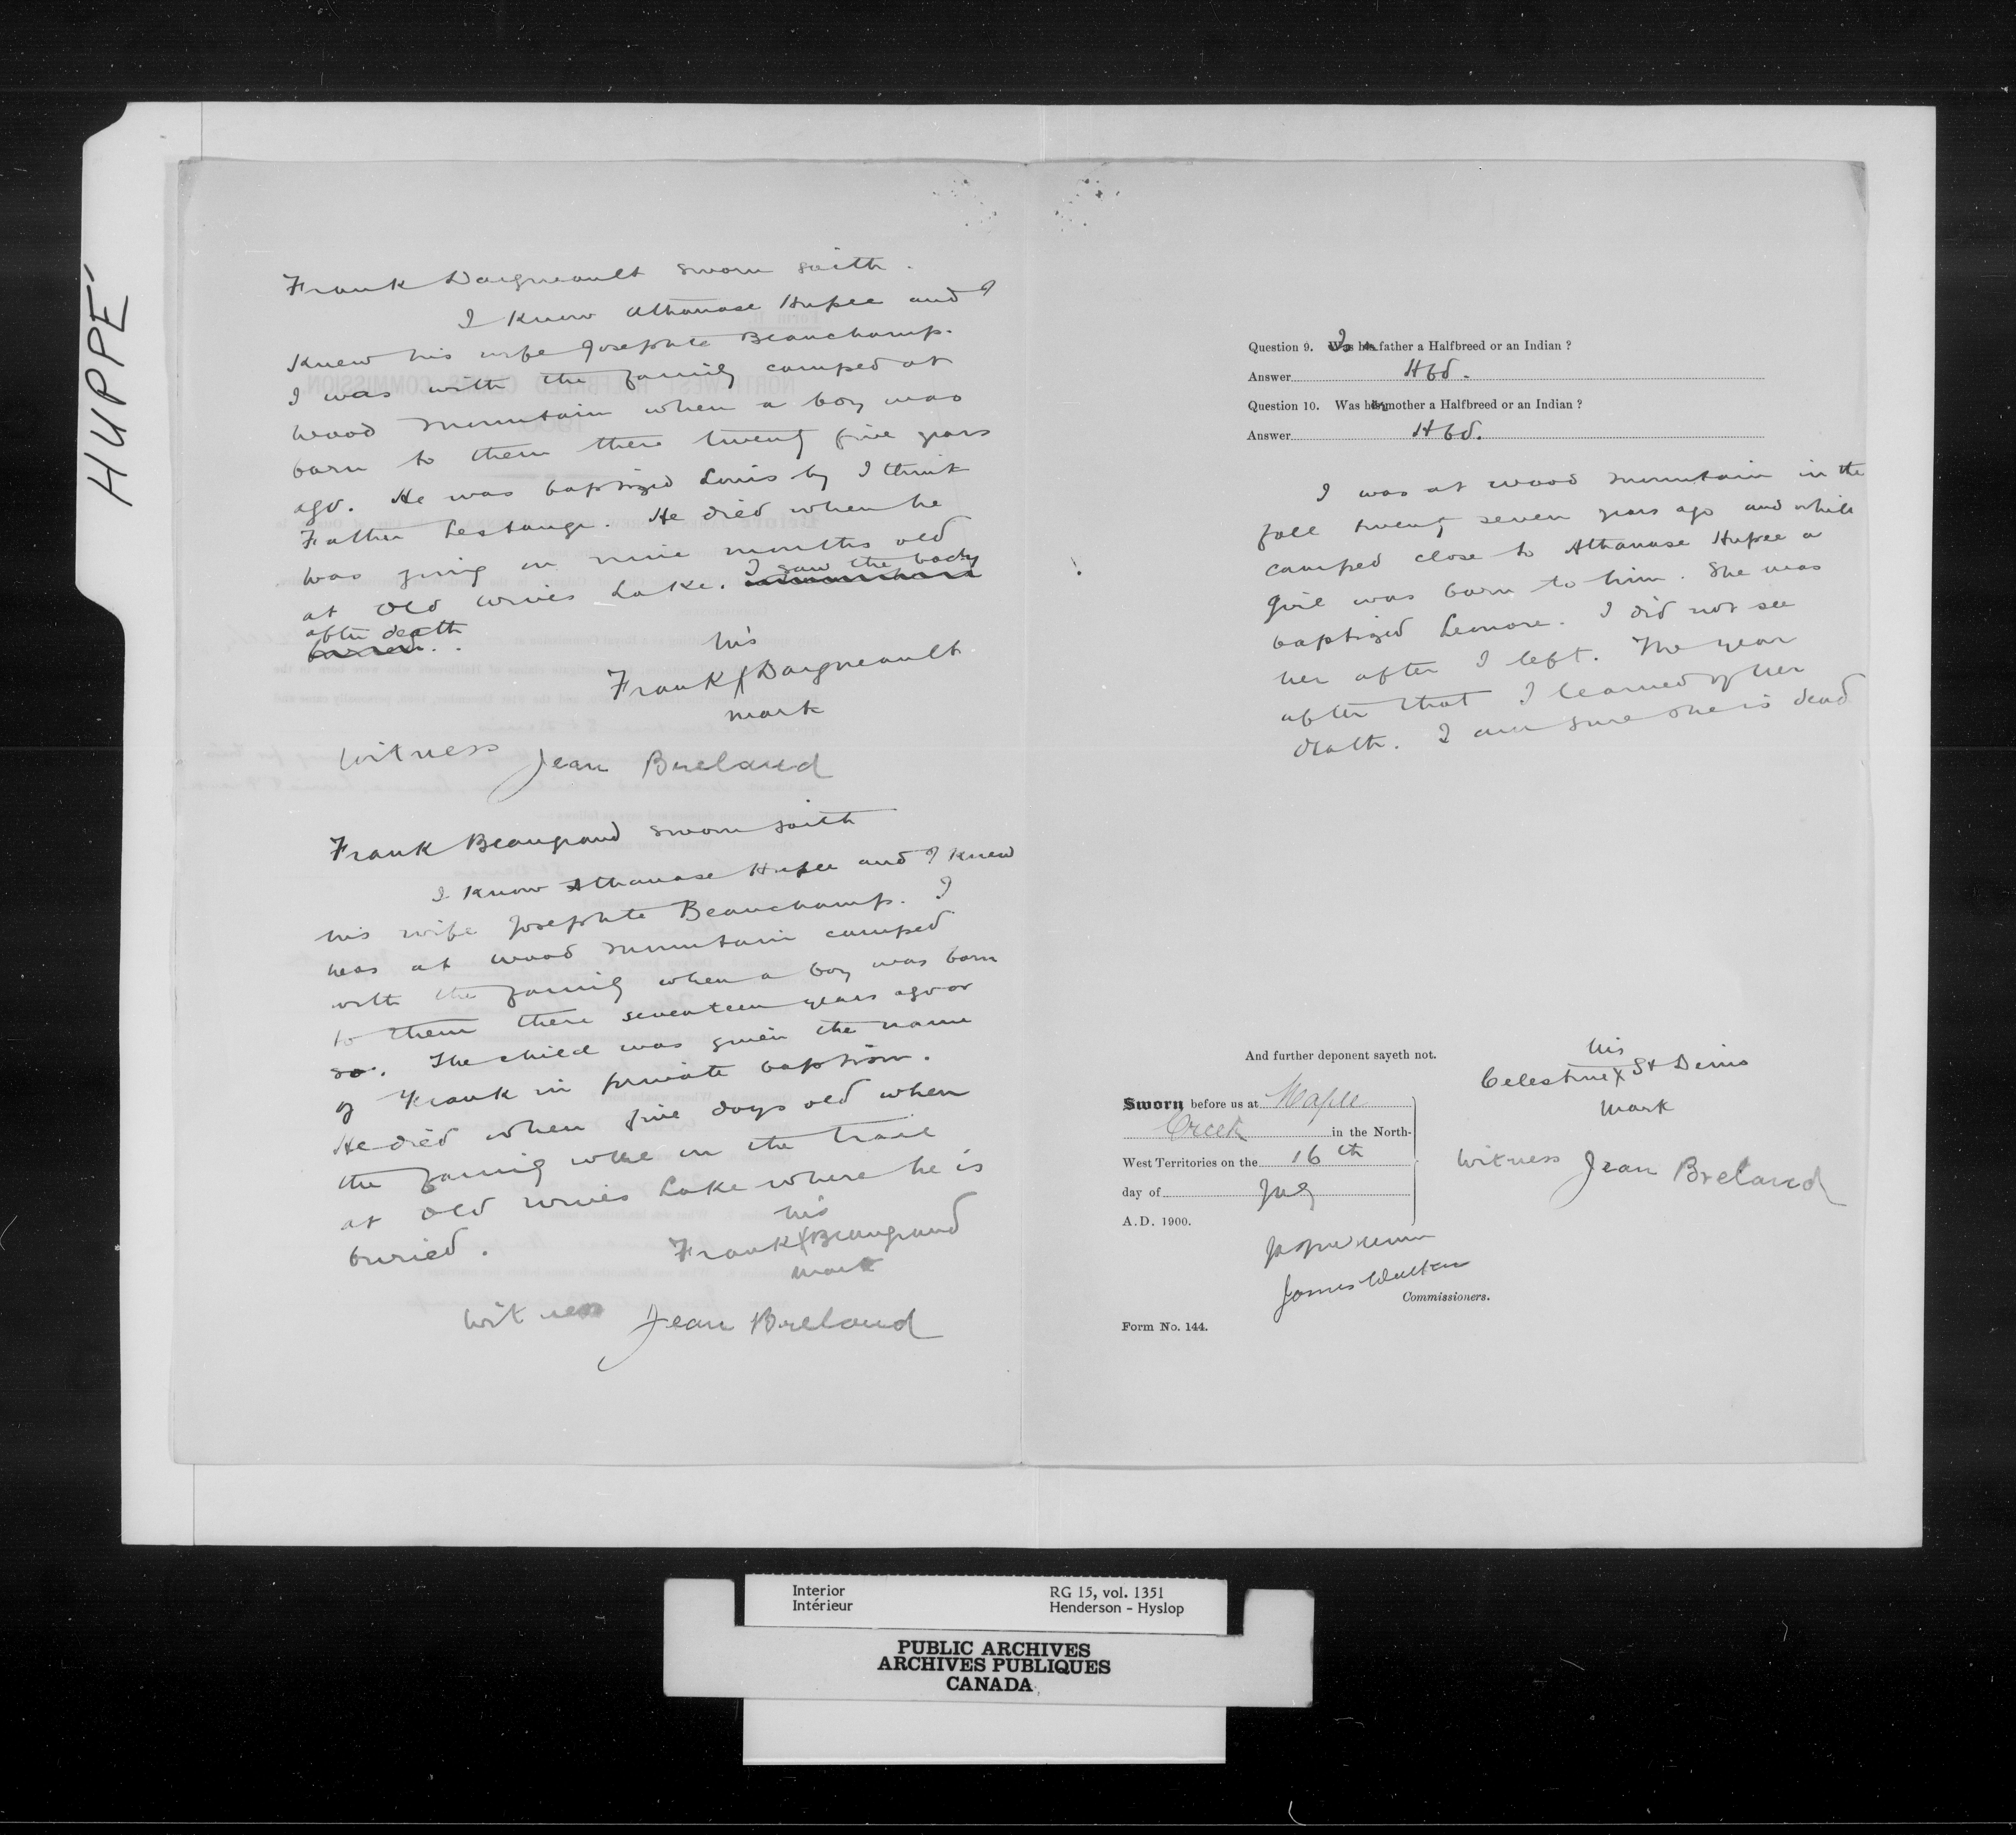 HUPPÉ
Frank Daigneault sworn saith.
I know Athanase Hupee and I
knew his wife Josephte Beauchamp.
I was with the family camped at
Wood Mountain when a boy was
born to them there twenty five years
ago. He was baptized Louis by I think
Father Lestange. He died when he
was going on nine months old
at Old Wives Lake. I saw the body
after death
his
Frank X Daigneault
mark
Witness Jean Breland
Frank Beaugrand sworn saith
I know Athanase Hupee and I knew
his wife Josephte Beauchamp. I
was at Wood Mountain camped
with the family when a boy was born
to them there seventeen years ago or
so. The child was given the name
of Frank in private baptism.
He died when five days old when
the family were on the trail
at Old Wives Lake where he is
buried.
his
Frank X Beaugrand
mark
Witness Jean Breland
Question 9. Is her father a Halfbreed or an Indian ?
Answer Hbd.
Question 10. Was her mother a Halfbreed or an Indian ?
Answer Hbd.
I was at Wood Mountain in the
fall twenty seven years ago and while
camped close to Athanase Hupee a
girl was born to him. She was
baptized Leonore. I did not see
her after I left. The year
after that I learned of her
death. I am sure she is dead
And further deponent sayeth not.
his
Celestine X St Denis
mark
Sworn before us at Maple
Creek in the North-
West Territories on the 16th
day of July
A.D. 1900.
Witness Jean Breland
James Walker
Commissioners.
Form No. 144.
Interior RG 15, vol. 1351
Intérieur Henderson - Hyslop
PUBLIC ARCHIVES
ARCHIVES PUBLIQUES
CANADA